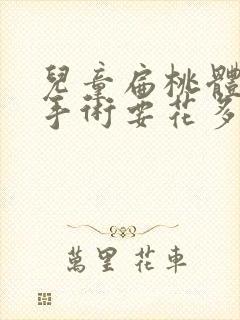 兒童扁桃體
手術要花多
萬里 花車